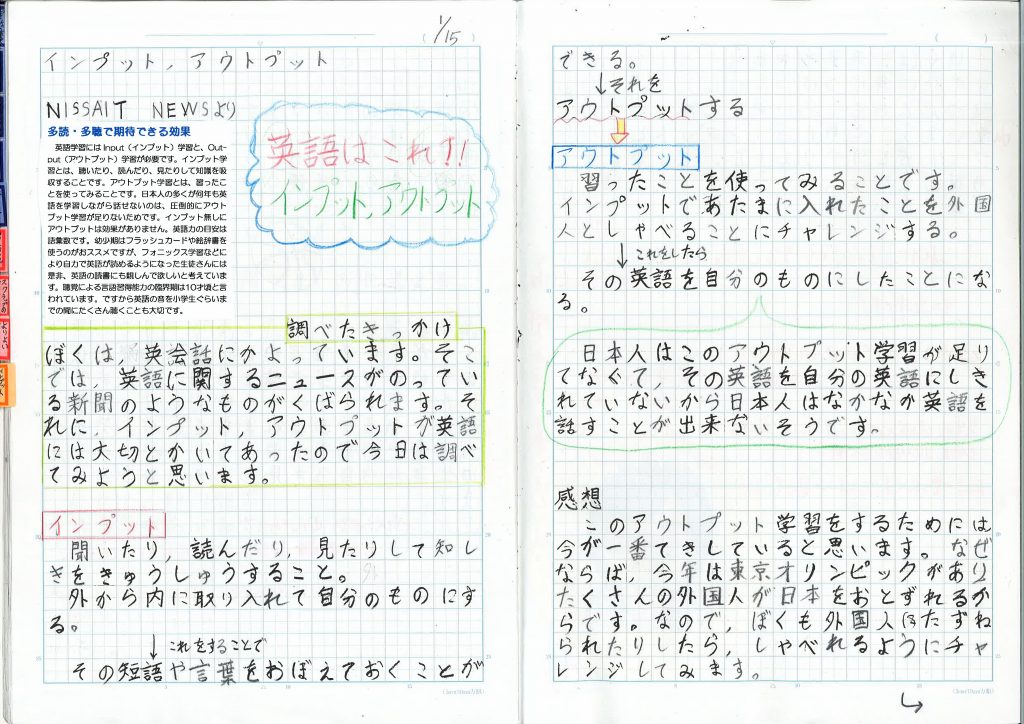 1/15
インプット,アウトプット
NISSAIT NEWSより
多読・多聴で期待できる効果
英語学習にはInput（インプット）学習と、Out-
put（アウトプット）学習が必要です。インプット学
習とは、聴いたり、読んだり、見たりして知識を吸
収することです。アウトプット学習とは、習ったこ
とを使ってみることです。日本人の多くが何年も英
語を学習しながら話せないのは、圧倒的にアウト
プット学習が足りないためです。インプット無しに
アウトプットは効果がありません。英語力の目安は
語彙数です。幼少期はフラッシュカードや絵辞書を
使うのがおススメですが、フォニックス学習などに
より自力で英語が読めるようになった生徒さんには
是非、英語の読書にも親しんで欲しいと考えていま
す。聴覚による言語習得能力の臨界期は10才頃と言
われています。ですから英語の音を小学生ぐらいま
での間にたくさん聴くことも大切です。
英語はこれ!!
インプット,アウトプット
調べたきっかけ
ぼくは,英会話にかよっています。そこ
では,英語に関するニュースがのってい
る新聞のようなものがくばられます。そ
れに,インプット,アウトプットが英語
には大切とかいてあったので今日は調べ
てみようと思います。
インプット
聞いたり,読んだり,見たりして知し
きをきゅうしゅうすること。
外から内に取り入れて自分のものにす
る。
↓これをすることで
その短語や言葉をおぼえておくことが
できる。
↓それを
アウトプットする
アウトプット
習ったことを使ってみることです。
インプットであたまに入れたことを外国
人としゃべることにチャレンジする。
↓これをしたら
その英語を自分のものにしたことにな
る。
日本人はこのアウトプット学習が足り
てなくて,その英語を自分の英語にしき
れていないから日本人はなかなか英語を
話すことが出来ないそうです。
感想
このアウトプット学習をするためには
今が一番てきしていると思います。なぜ
ならば,今年は東京オリンピックがあり
たくさんの外国人が日本をおとずれるか
らです。なので,ぼくも外国人にたずね
られたりしたら,しゃべれるようにチャ
レンジしてみます。